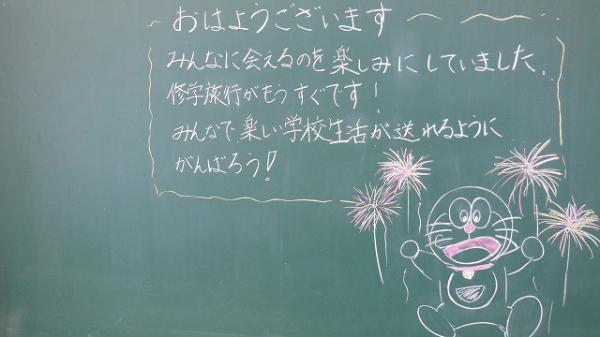 ～おはようございます～
みんなに会えるのを楽しみにしていました。
修学旅行がもうすぐです！
みんなで楽しい学校生活が送れるように
がんばろう！